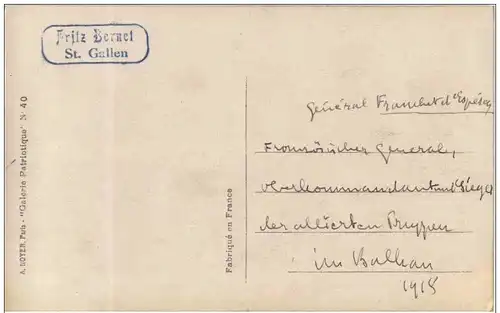 Fritz Bernet
St. Gallen
A. NOYER, Paris - "Galerie Patriotique" N° 40
Fabriqué en France
général Franchet d'Espérey
Französischer General,
Oberkommandant und Sieger
der allierten Truppen
im Balkan
1918